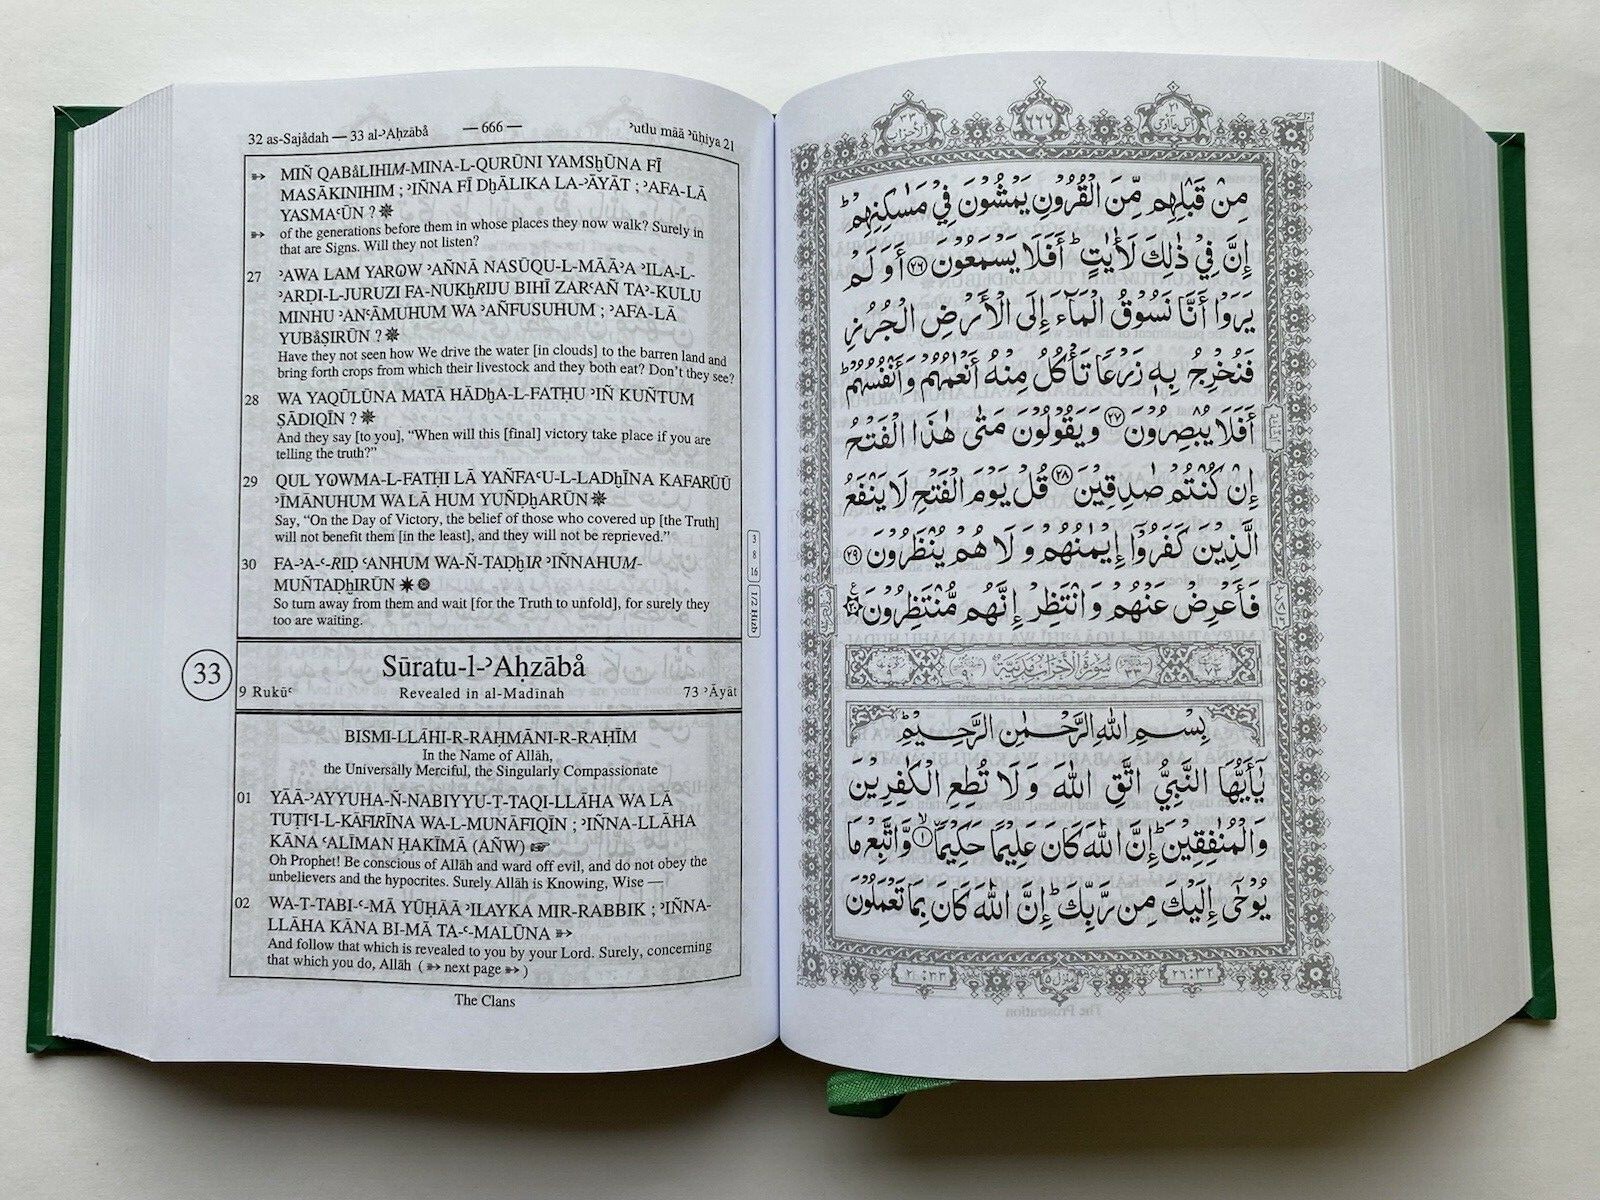 32 as-Sajådah — 33 al-ʾAḥzābå — 666 — ʾutlu māā ʾūḥiya 21
➳ MIÑ QABåLIHIM-MINA-L-QURŪNI YAMSẖŪNA FĪ
MASĀKINIHIM ; ʾIÑNA FĪ DẖĀLIKA LA-ʾĀYĀT ; ʾAFA-LĀ
YASMAʿŪN ? ✵
➳ of the generations before them in whose places they now walk? Surely in
that are Signs. Will they not listen?
27 ʾAWA LAM YAROW ʾAÑNĀ NASŪQU-L-MĀĀʾA ʾILA-L-
ʾARḌI-L-JURUZI FA-NUKẖRIJU BIHĪ ZARʿAÑ TAʾ-KULU
MINHU ʾANʿĀMUHUM WA ʾAÑFUSUHUM ; ʾAFA-LĀ
YUBåṢIRŪN ? ✵
Have they not seen how We drive the water [in clouds] to the barren land and
bring forth crops from which their livestock and they both eat? Don't they see?
28 WA YAQŪLŪNA MATĀ HĀDẖA-L-FATḤU ʾIÑ KUÑTUM
ṢĀDIQĪN ? ✵
And they say [to you], “When will this [final] victory take place if you are
telling the truth?”
29 QUL YOWMA-L-FATḤI LĀ YAÑFAʿU-L-LADẖĪNA KAFARŪŪ
ʾĪMĀNUHUM WA LĀ HUM YUÑḌẖARŪN ✵
Say, “On the Day of Victory, the belief of those who covered up [the Truth]
will not benefit them [in the least], and they will not be reprieved.”
30 FA-ʾA-ʿ-RIḌ ʿANHUM WA-Ñ-TAḌẖIR ʾIÑNAHUM-
MUÑTAḌẖIRŪN ✷
So turn away from them and wait [for the Truth to unfold], for surely they
too are waiting.
3
8
16
1/2 Hizb
33
Sūratu-l-ʾAḥzābå
9 Rukūʿ Revealed in al-Madīnah 73 ʾĀyāt
BISMI-LLĀHI-R-RAḤMĀNI-R-RAḤĪM
In the Name of Allāh,
the Universally Merciful, the Singularly Compassionate
01 YĀĀ-ʾAYYUHA-Ñ-NABIYYU-T-TAQI-LLĀHA WA LĀ
TUṬIʿI-L-KĀFIRĪNA WA-L-MUNĀFIQĪN ; ʾIÑNA-LLĀHA
KĀNA ʿALĪMAN ḤAKĪMĀ (AÑW) ☞
Oh Prophet! Be conscious of Allāh and ward off evil, and do not obey the
unbelievers and the hypocrites. Surely Allāh is Knowing, Wise —
02 WA-T-TABI-ʿ-MĀ YŪḤĀĀ ʾILAYKA MIR-RABBIK ; ʾIÑNA-
LLĀHA KĀNA BI-MĀ TA-ʿ-MALŪNA ➳
And follow that which is revealed to you by your Lord. Surely, concerning
that which you do, Allāh ( ➳ next page ➳ )
The Clans
٢١ اتل ما اوحي ٦٦٦ ٣٣ الاحزاب
مِنْ قَبْلِهِم مِّنَ الْقُرُونِ يَمْشُونَ فِيْ مَسٰكِنِهِمْ ؕ
اِنَّ فِيْ ذٰلِكَ لَاٰيٰتٍ ؕ اَفَلَا يَسْمَعُوْنَ ٢٦ اَوَلَمْ
يَرَوْا اَنَّا نَسُوْقُ الْمَآءَ اِلَى الْاَرْضِ الْجُرُزِ
فَنُخْرِجُ بِهٖ زَرْعًا تَاْكُلُ مِنْهُ اَنْعٰمُهُمْ وَاَنْفُسُهُمْ ؕ
اَفَلَا يُبْصِرُوْنَ ٢٧ وَيَقُوْلُوْنَ مَتٰى هٰذَا الْفَتْحُ
اِنْ كُنْتُمْ صٰدِقِيْنَ ٢٨ قُلْ يَوْمَ الْفَتْحِ لَا يَنْفَعُ
الَّذِيْنَ كَفَرُوْٓا اِيْمٰنُهُمْ وَلَا هُمْ يُنْظَرُوْنَ ٢٩
فَاَعْرِضْ عَنْهُمْ وَانْتَظِرْ اِنَّهُم مُّنْتَظِرُوْنَ ٣٠
سُوْرَةُ الْاَحْزَابِ مَدَنِيَّةٌ
بِسْمِ اللهِ الرَّحْمٰنِ الرَّحِيْمِ
يٰٓاَيُّهَا النَّبِيُّ اتَّقِ اللهَ وَلَا تُطِعِ الْكٰفِرِيْنَ
وَالْمُنٰفِقِيْنَ ؕ اِنَّ اللهَ كَانَ عَلِيْمًا حَكِيْمًا ١ وَّاتَّبِعْ مَا
يُوْحٰٓى اِلَيْكَ مِن رَّبِّكَ ؕ اِنَّ اللهَ كَانَ بِمَا تَعْمَلُوْنَ
٢٦:٣٢ ٢:٣٣